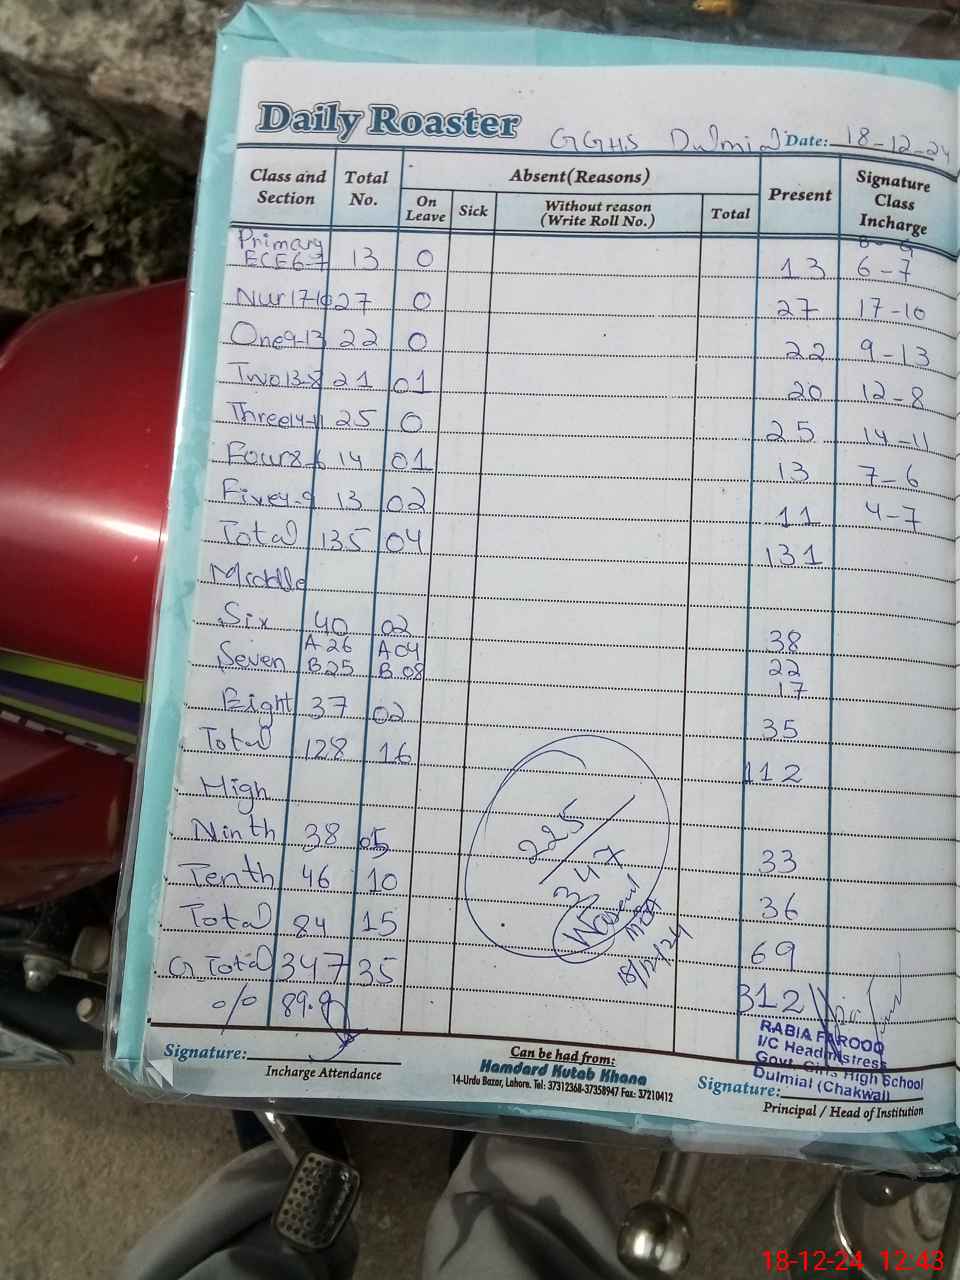 Daily Roaster GGHS Dulmial Date: 18-12-24
Class and Section Total No. Absent(Reasons) Present Signature Class Incharge
On Leave Sick Without reason (Write Roll No.) Total
Primary
ECE 6-7 13 0 13 6-7
Nur 17-10 27 0 27 17-10
One 9-13 22 0 22 9-13
Two 13-8 21 01 20 12-8
Three 14-11 25 0 25 14-11
Four 8-6 14 01 13 7-6
Five 4-9 13 02 11 4-7
Total 135 04 131
Middle
Six 40 02 38
Seven A 26 A 04 22
B 25 B 08 17
Eight 37 02 35
Total 128 16 112
High
Ninth 38 05 33
Tenth 46 10 36
Total 84 15 69
G Total 347 35 312
% 89.9
225/347
18/12/24
RABIA FAROOQ
I/C Headmistress
Govt. Girls High School
Dulmial (Chakwal)
Signature: Can be had from: Signature:
Incharge Attendance Hamdard Kutab Khana Principal / Head of Institution
14-Urdu Bazar, Lahore. Tel: 37312368-37358947 Fax: 37210412
18-12-24 12:43